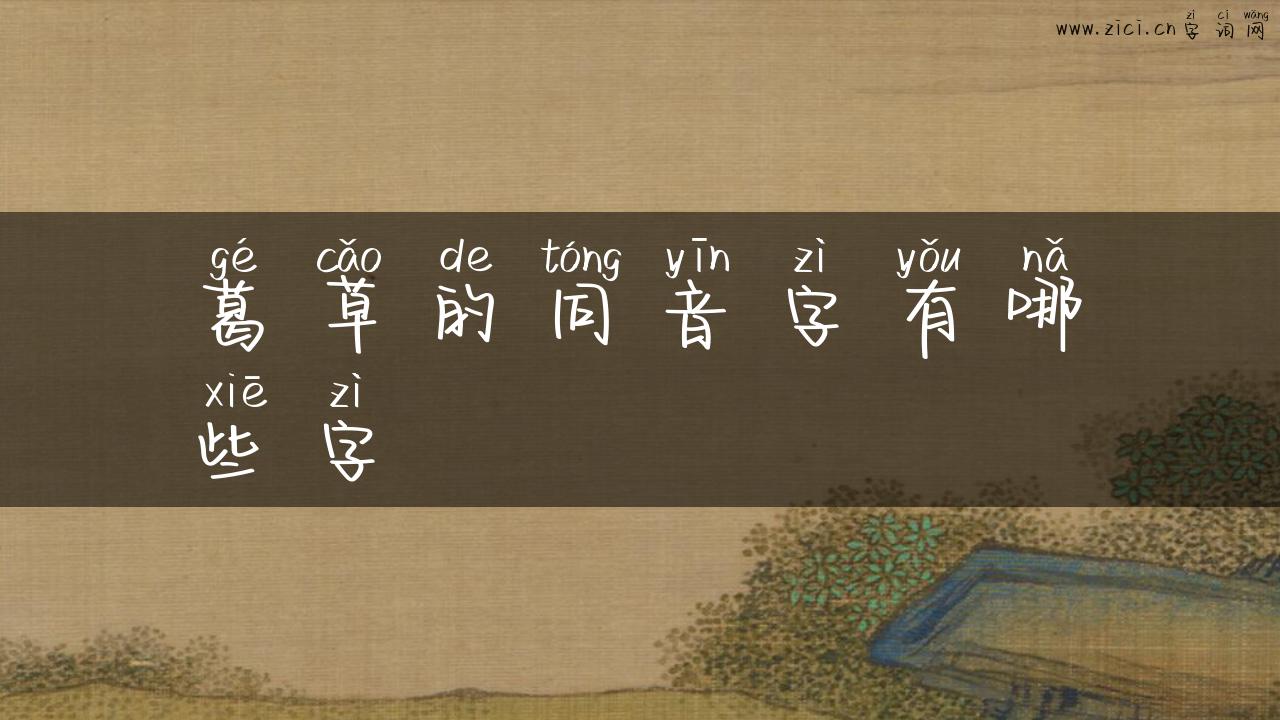 zì cí wǎng
www.zici.cn字词网
gé cǎo de tóng yīn zì yǒu nǎ
葛草的同音字有哪
xiē zì
些字